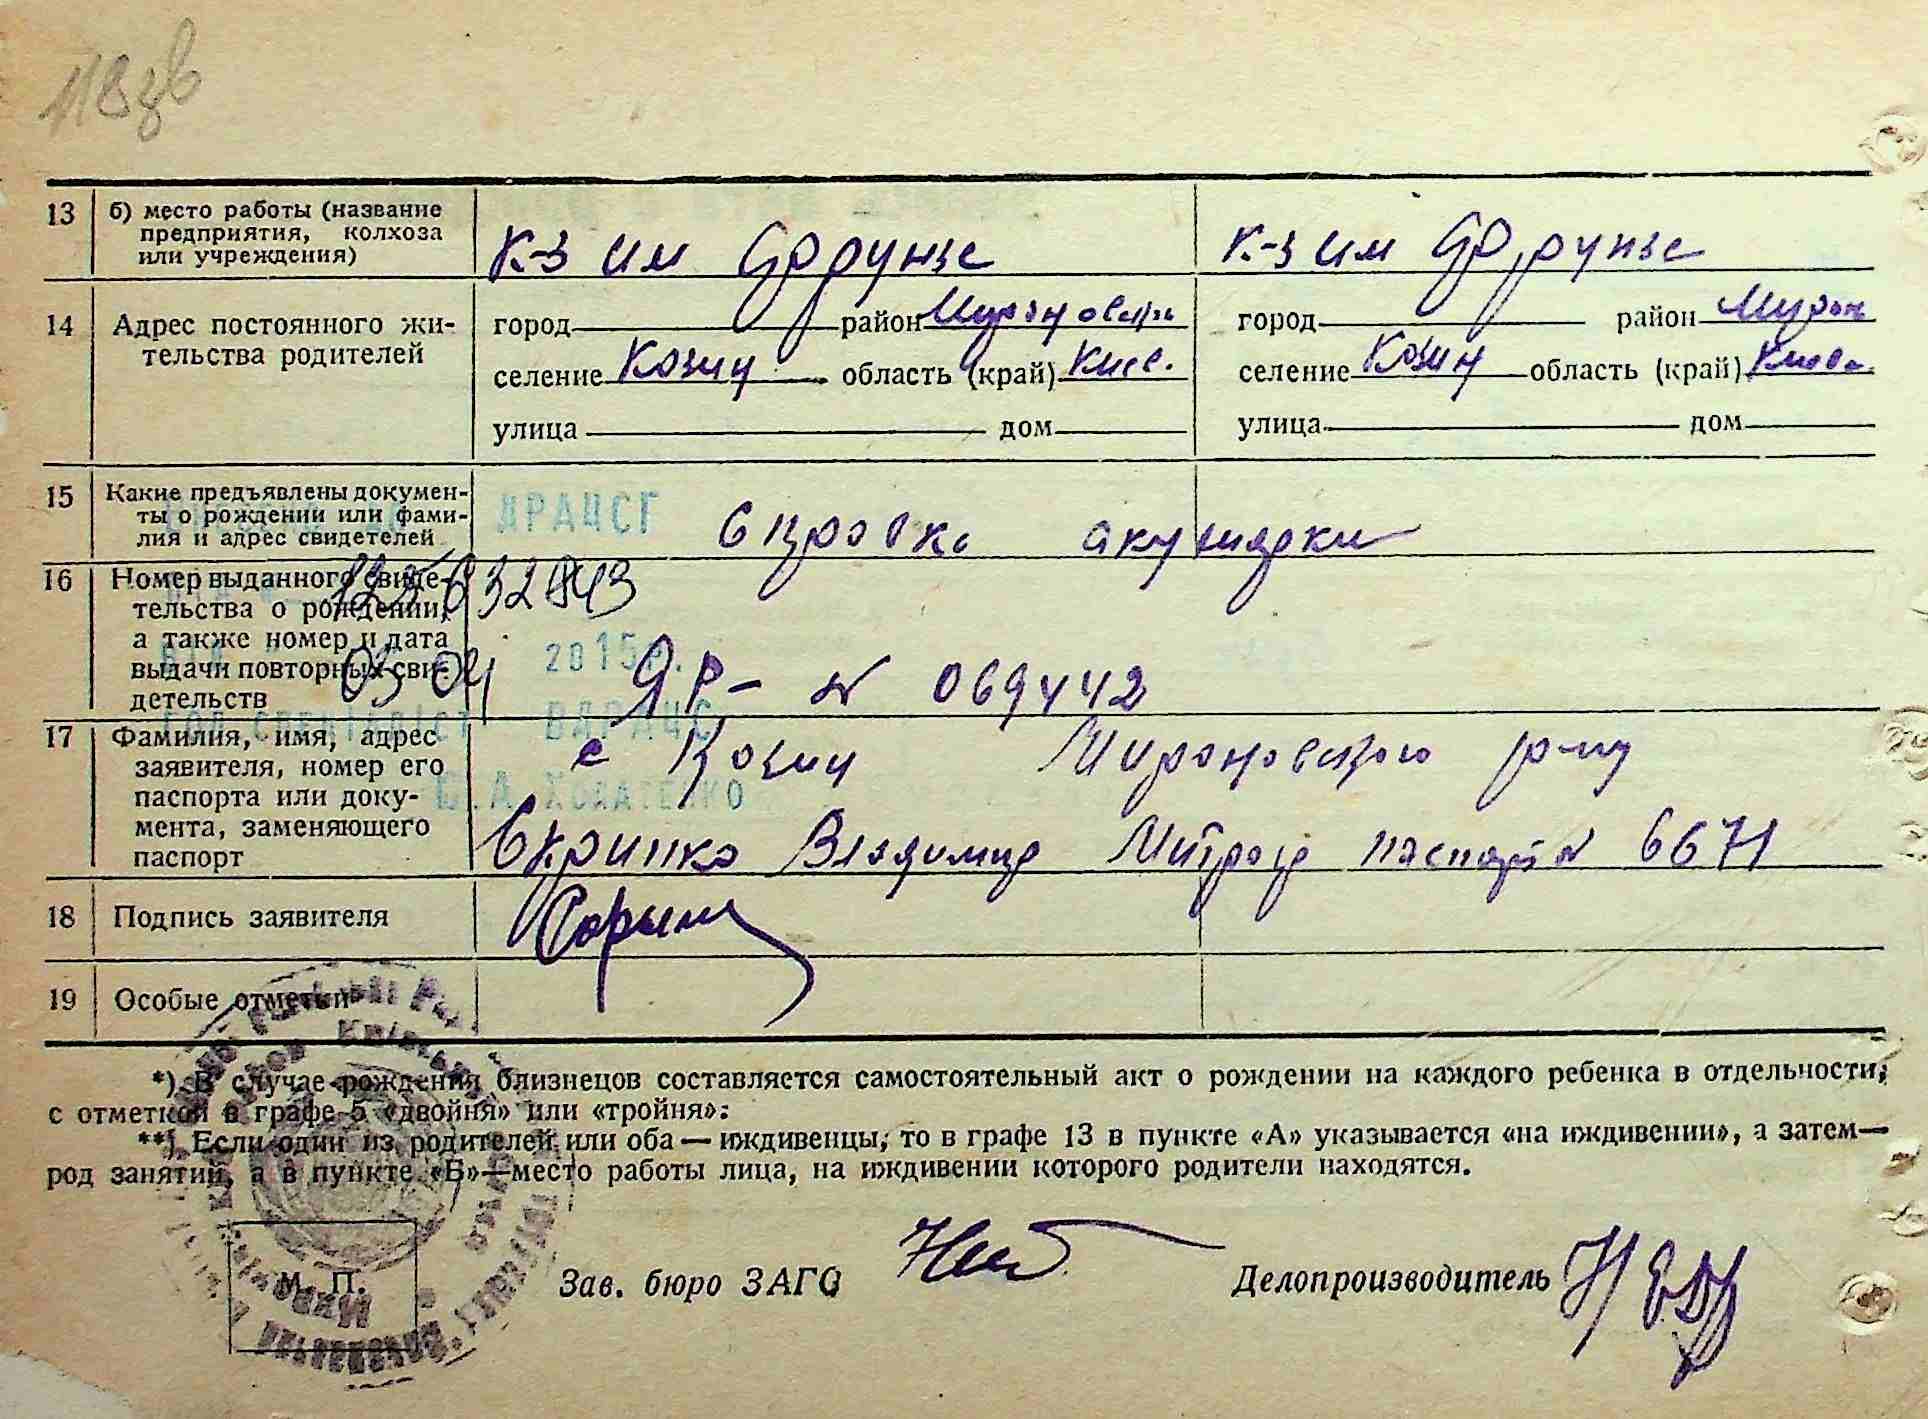 118зв
13 б) место работы (название предприятия, колхоза или учреждения) к-з им Фрунзе к-з им Фрунзе
14 Адрес постоянного жи-
тельства родителей
город район Мироновск город район Мирон
селение Козин область (край) Киев. селение Козин область (край) Киев.
улица дом улица дом
15 Какие предъявлены докумен-
ты о рождении или фами-
лия и адрес свидетелей
ДРАЦСГ
Справка акушерки
16 Номер выданного свиде-
тельства о рождении,
а также номер и дата
выдачи повторных сви-
детельств
03 04 2015р.
ЯР- № 069442
17 Фамилия, имя, адрес
заявителя, номер его
паспорта или доку-
мента, заменяющего
паспорт
ВДРАЦС
с Козин Мироновского р-ну
Скрипка Владимир Митроф паспорт № 6671
18 Подпись заявителя
19 Особые отметки
*) В случае рождения близнецов составляется самостоятельный акт о рождении на каждого ребенка в отдельности,
с отметкой в графе 5 «двойня» или «тройня»:
**) Если один из родителей или оба — иждивенцы, то в графе 13 в пункте «А» указывается «на иждивении», а затем—
род занятий, а в пункте «Б»—место работы лица, на иждивении которого родители находятся.
М. П.
Зав. бюро ЗАГС Делопроизводитель